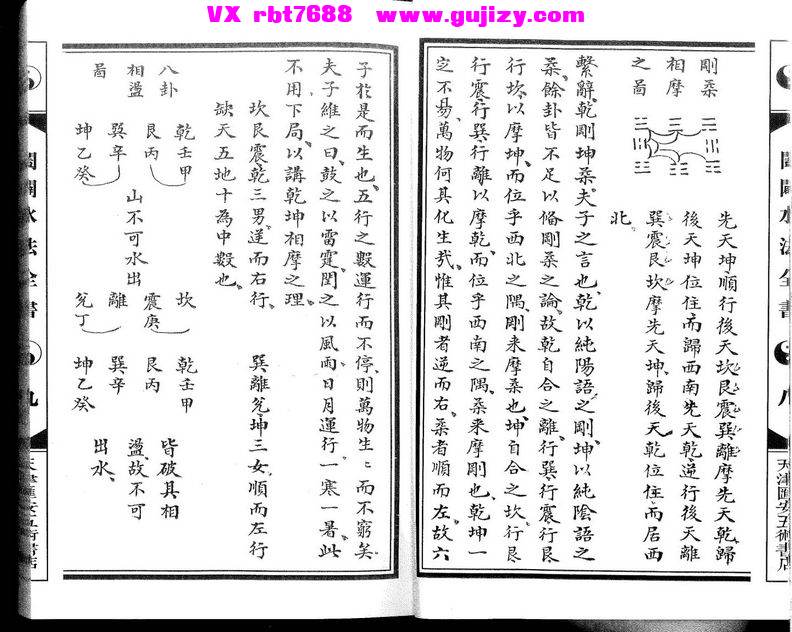 VX rbt7688 www.gujizy.com
剛柔
相摩
之啚
先天坤順行後天坎艮震巽離摩先天乾歸
後天坤位住而歸西南先天乾逆行後天離
巽震艮坎摩先天坤歸後天乾位住而居西
北
繫辭乾剛坤柔夫子之言也乾以純陽語之剛坤以純陰語之
柔餘卦皆不足以偹剛柔之論故乾自合之離行巽行震行艮
行坎以摩坤而位乎西北之隅剛來摩柔也坤自合之坎行艮
行震行巽行離以摩乾而位乎西南之隅柔來摩剛也乾坤一
定不易萬物何其化生哉惟其剛者逆而右柔者順而左故六
闔闢水法全書
八
天津匯安五術書店
子於是而生也五行之數運行而不停則萬物生ミ而不窮矣
夫子維之曰鼓之以雷霆閏之以風雨日月運行一寒一暑此
不用下局以講乾坤相摩之理
坎艮震乾三男逆而右行 巽離兌坤三女順而左行
缺天五地十為中數也
八卦
相盪
啚
乾壬甲
艮丙
巽辛
坤乙癸
山不可水出
坎
震庚
離
兌丁
乾壬甲
艮丙
巽辛
坤乙癸
皆破其相
盪故不可
出水
闔闢水法全書
九
天津匯安五術書店